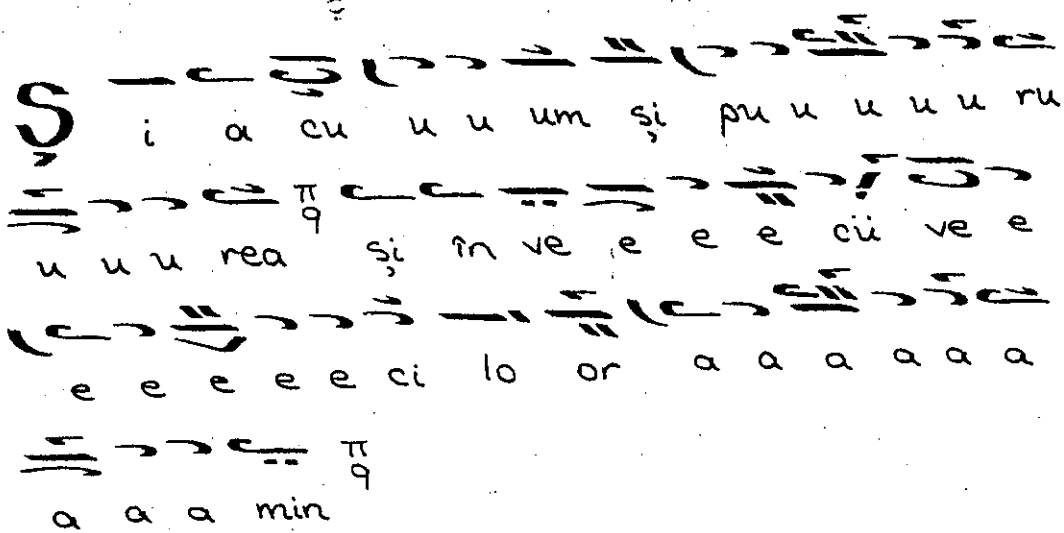 Ș i a cu u u um și pu u u u u ru
u u u rea π q și în ve e e e cü ve e
e e e e e ci lo or a a a a a a
a a a min π q